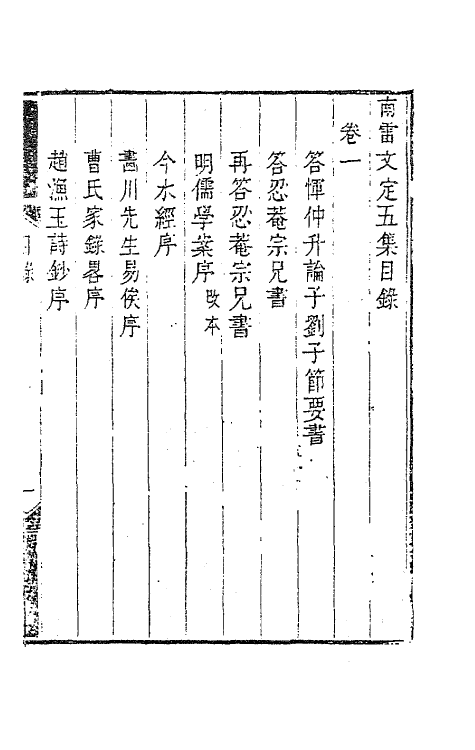 南雷文定五集目錄
卷一
答惲仲升論子劉子節要書
答忍菴宗兄書
再答忍菴宗兄書
明儒學案序 改本
今水經序
畫川先生易俟序
曹氏家錄畧序
趙漁玉詩鈔序
目錄
一